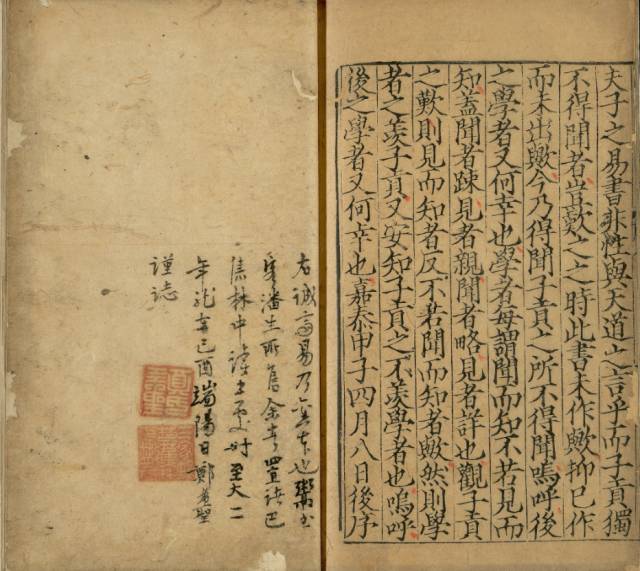 夫子之易書非性與天道之言乎而子貢獨
不得聞者豈歎之之時此書未作歟抑已作
而未出歟今乃得聞子貢之所不得聞嗚呼後
之學者又何幸也學者每謂聞而知不若見而
知蓋聞者踈見者親聞者略見者詳也觀子貢
之歎則見而知者反不若聞而知者歟然則學
者之羨子貢又安知子貢之不羨學者也嗚呼
後之學者又何幸也嘉泰甲子四月八日後序
右誠齋易乃本也
潘生所余置諸
林中至大二
年己酉端陽日鄭
謹誌